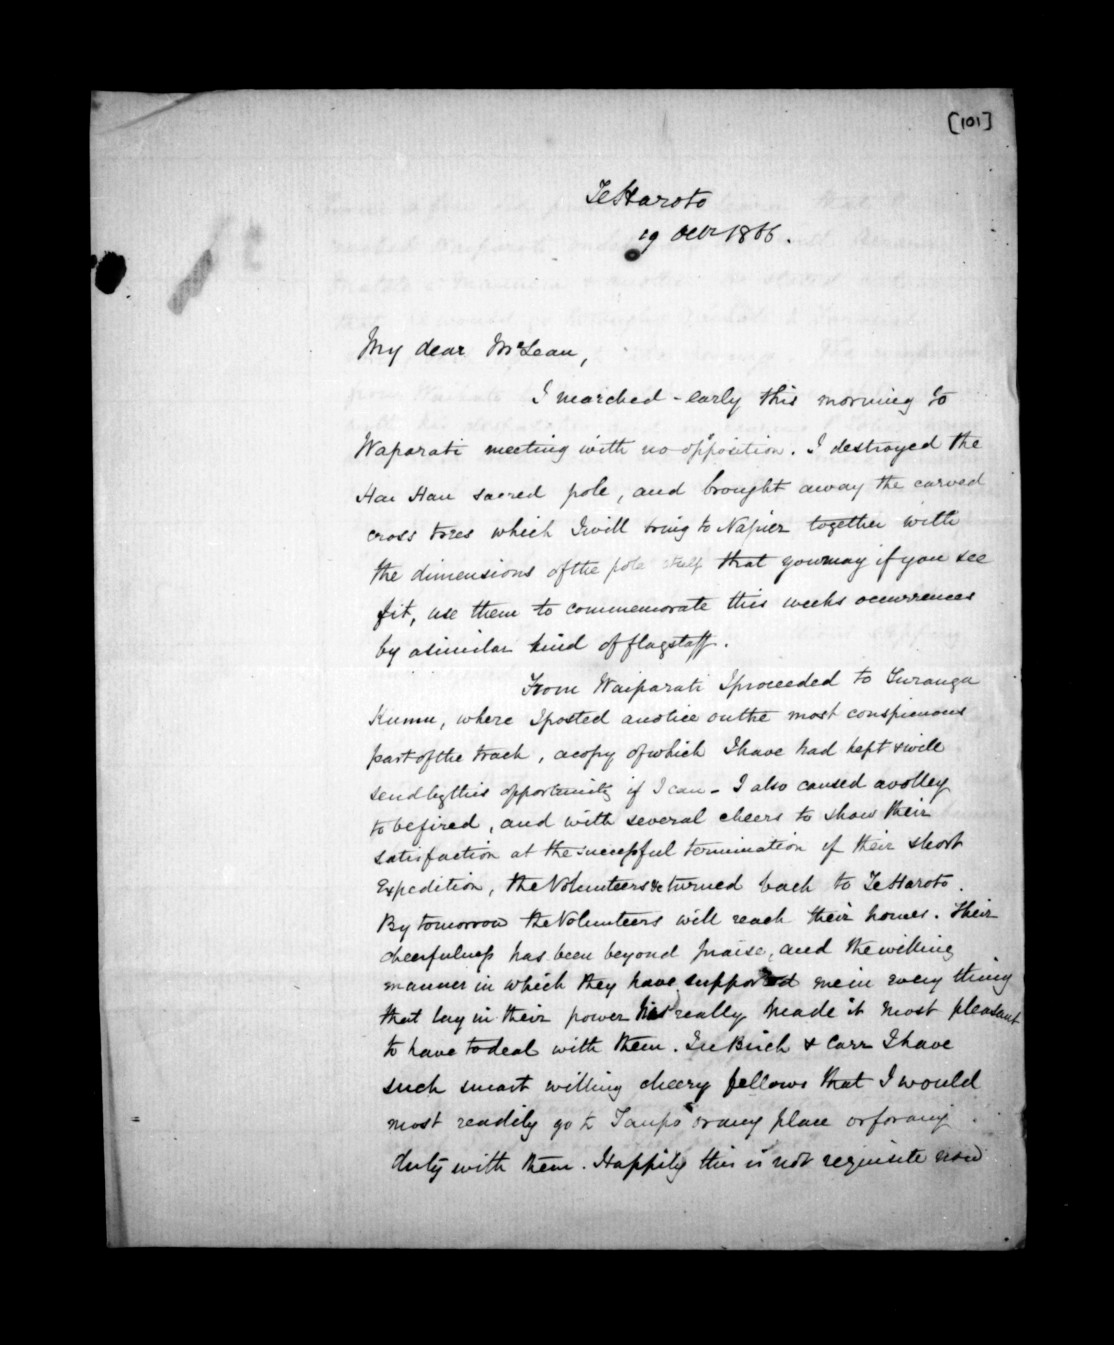 [101]
Te Haroto
19 Octr 1866.
My dear McLean,
I marched - early this morning to
Waparati meeting with no opposition. I destroyed the
Hau Hau sacred pole, and brought away the carved
cross trees which I will bring to Napier together with
the dimensions of the pole itself that you may if you see
fit, use them to commemorate this weeks occurrences
by a similar kind of flagstaff.
From Waiparati I proceeded to Turanga
Kumu, where I posted a notice on the most conspicuous
part of the track, a copy of which I have had kept & will
send by this opportunity if I can - I also caused a volley
to be fired, and with several cheers to show their
satisfaction at the successful termination of their short
Expedition, the Volunteers returned back to Te Haroto.
By tomorrow the Volunteers will reach their homes. Their
cheerfulness has been beyond praise, and the willing
manner in which they have supported me in every thing
that lay in their power has really made it most pleasant
to have to deal with them. In Birch & Carr I have
such smart willing cheery fellows that I would
most readily go to Taupo or any place or for any
duty with them. Happily this is not requisite now